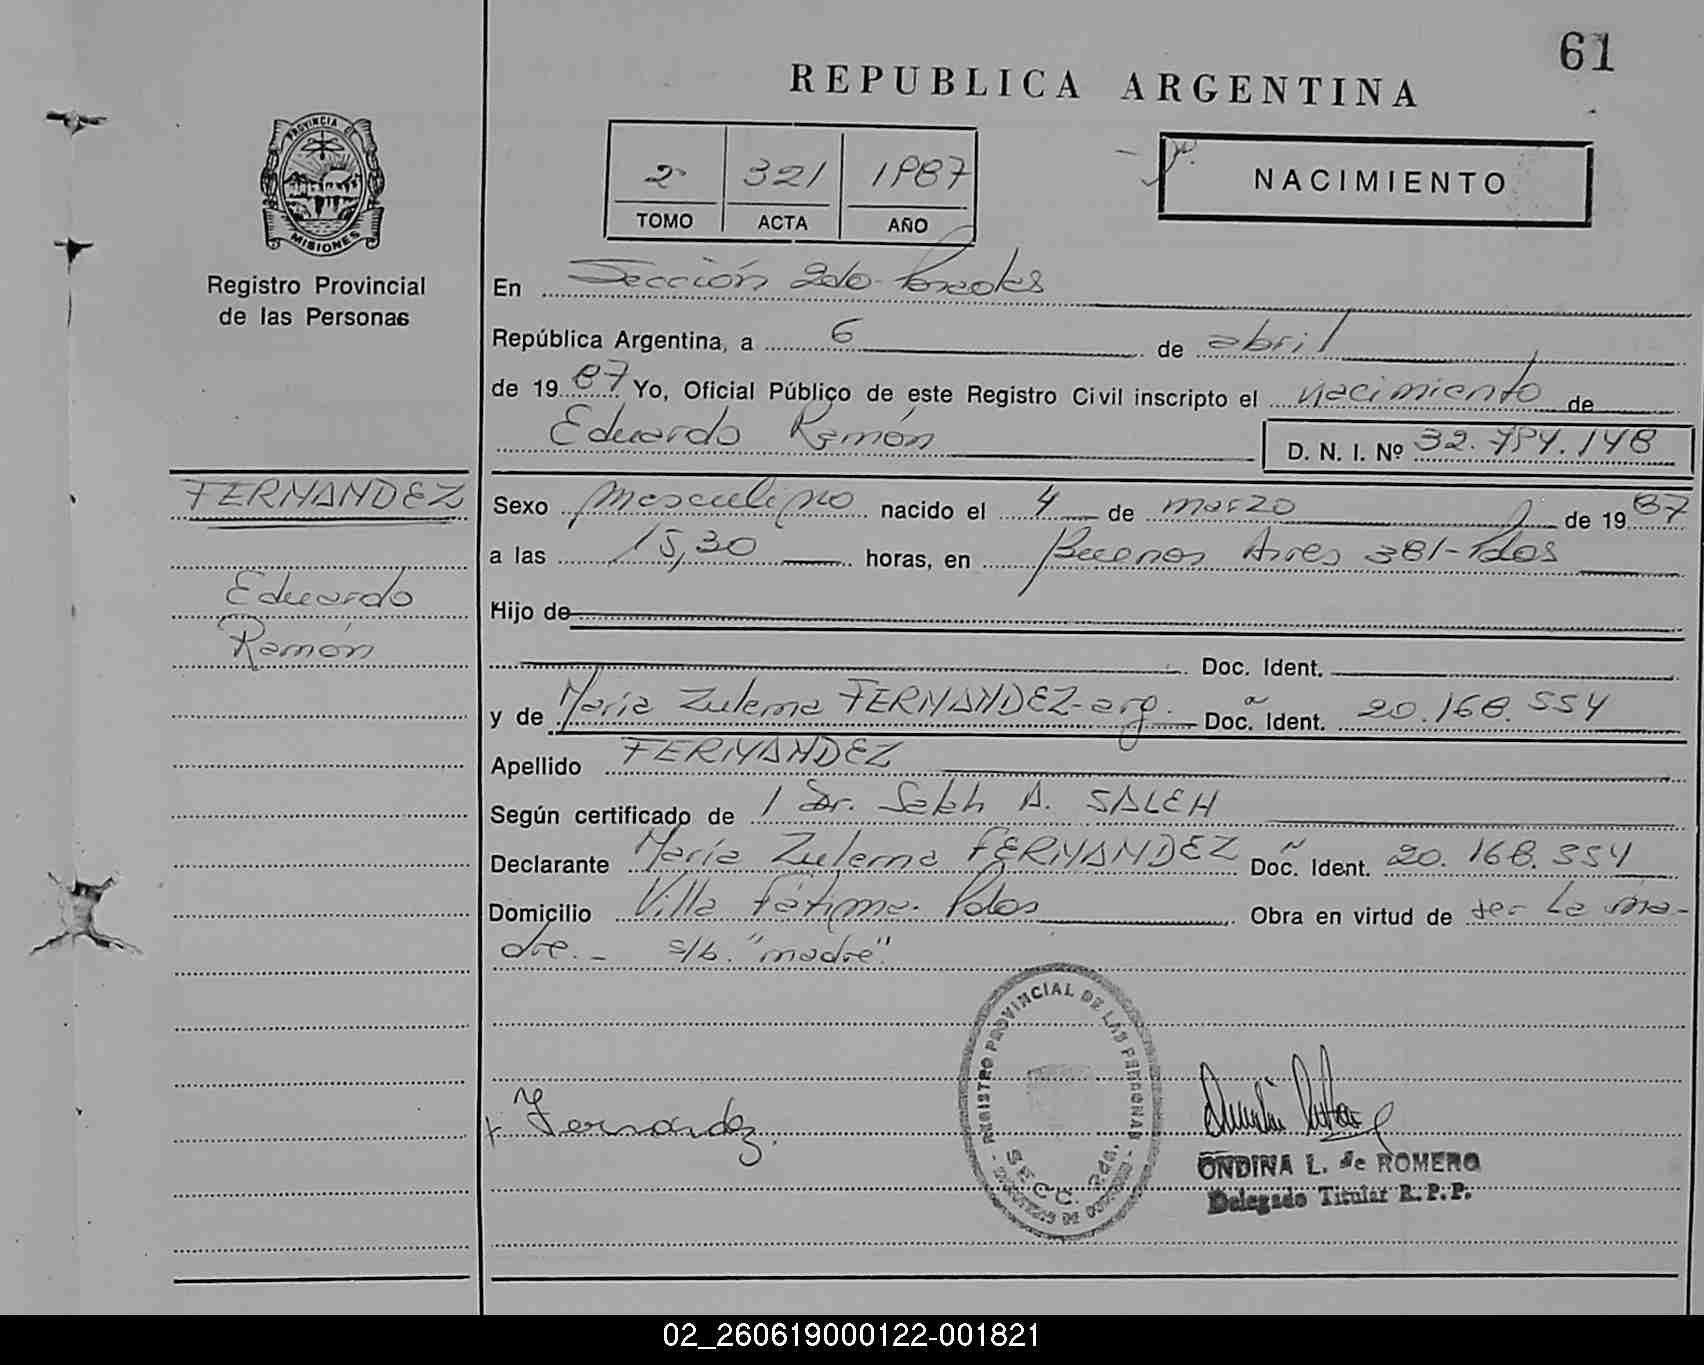 61
REPUBLICA ARGENTINA
PROVINCIA DE
MISIONES
Registro Provincial
de las Personas
2º 321 1987
TOMO ACTA AÑO
NACIMIENTO
En Sección 2do. Posadas
República Argentina, a 6 de abril
de 1987 Yo, Oficial Público de este Registro Civil inscripto el nacimiento de
Eduardo Ramón D. N. I. Nº 32.784.148
FERNANDEZ
Eduardo
Ramón
Sexo masculino nacido el 4 de marzo de 1987
a las 15,30 horas, en Buenos Aires 381-Pdas
Hijo de
Doc. Ident.
y de María Zulema FERNANDEZ-arg. Doc. Ident. 20.168.554
Apellido FERNANDEZ
Según certificado de Dr. A. SALEH
Declarante María Zulema FERNANDEZ Doc. Ident. 20.168.554
Domicilio Villa Fátima. Pdas Obra en virtud de ser la ma-
dre.- s/b. "madre".
Fernandez
REGISTRO PROVINCIAL DE LAS PERSONAS
SECC. 2da.
ONDINA L. de ROMERO
Delegado Titular R.P.P.
02_260619000122-001821